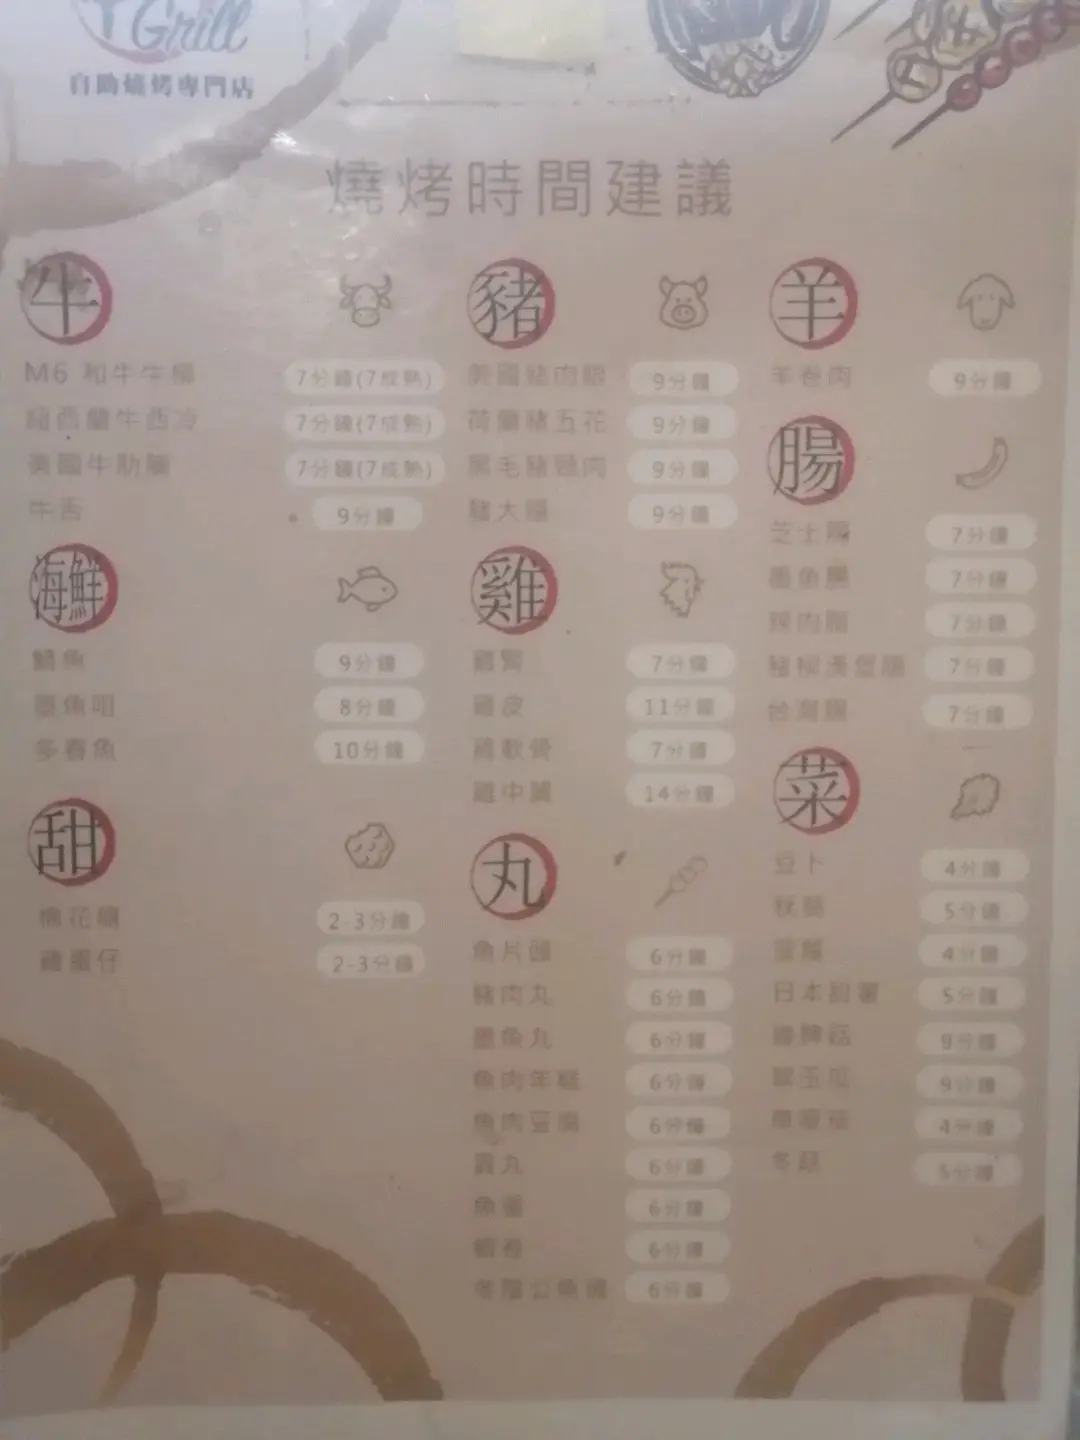 Grill
自助燒烤專門店
燒烤時間建議
牛
M6 和牛牛柳 7分鐘(7成熟)
紐西蘭牛西冷 7分鐘(7成熟)
美國牛肋 7分鐘(7成熟)
牛舌 9分鐘
海鮮
鯖魚 9分鐘
墨魚咀 8分鐘
多春魚 10分鐘
甜
棉花糖 2-3分鐘
雞蛋仔 2-3分鐘
豬
美國豬肉眼 9分鐘
荷蘭豬五花 9分鐘
黑毛豬頸肉 9分鐘
豬大腸 9分鐘
雞
雞腎 7分鐘
雞皮 11分鐘
雞軟骨 7分鐘
雞中翼 14分鐘
丸
魚片頭 6分鐘
豬肉丸 6分鐘
墨魚丸 6分鐘
魚肉年糕 6分鐘
魚肉豆腐 6分鐘
貢丸 6分鐘
魚蛋 6分鐘
蝦卷 6分鐘
冬陰公魚 6分鐘
羊
羊卷肉 9分鐘
腸
芝士腸 7分鐘
墨魚腸 7分鐘
辣肉腸 7分鐘
豬柳漢堡腸 7分鐘
台灣腸 7分鐘
菜
豆卜 4分鐘
秋葵 5分鐘
4分鐘
日本甜薯 5分鐘
雞脾菇 9分鐘
翠玉瓜 9分鐘
4分鐘
冬菇 5分鐘